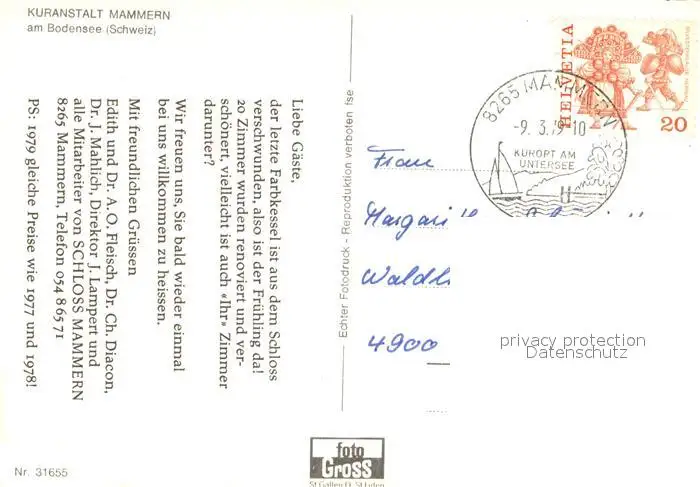 KURANSTALT MAMMERN
am Bodensee (Schweiz)
Liebe Gäste,
der letzte Farbkessel ist aus dem Schloss
verschwunden, also ist der Frühling da!
20 Zimmer wurden renoviert und ver-
schönert, vielleicht ist auch «Ihr» Zimmer
darunter?
Wir freuen uns, Sie bald wieder einmal
bei uns willkommen zu heissen.
Mit freundlichen Grüssen
Edith und Dr. A. O. Fleisch, Dr. Ch. Diacon,
Dr. J. Mahlich, Direktor J. Lampert und
alle Mitarbeiter von SCHLOSS MAMMERN
8265 Mammern, Telefon 054 8 65 71
PS: 1979 gleiche Preise wie 1977 und 1978!
Echter Fotodruck - Reproduktion verboten
HELVETIA
20
8265 MAMMERN
-9. 3. 79-10
KURORT AM
UNTERSEE
Frau
4900
privacy protection
Datenschutz
foto
Gross
Nr. 31655